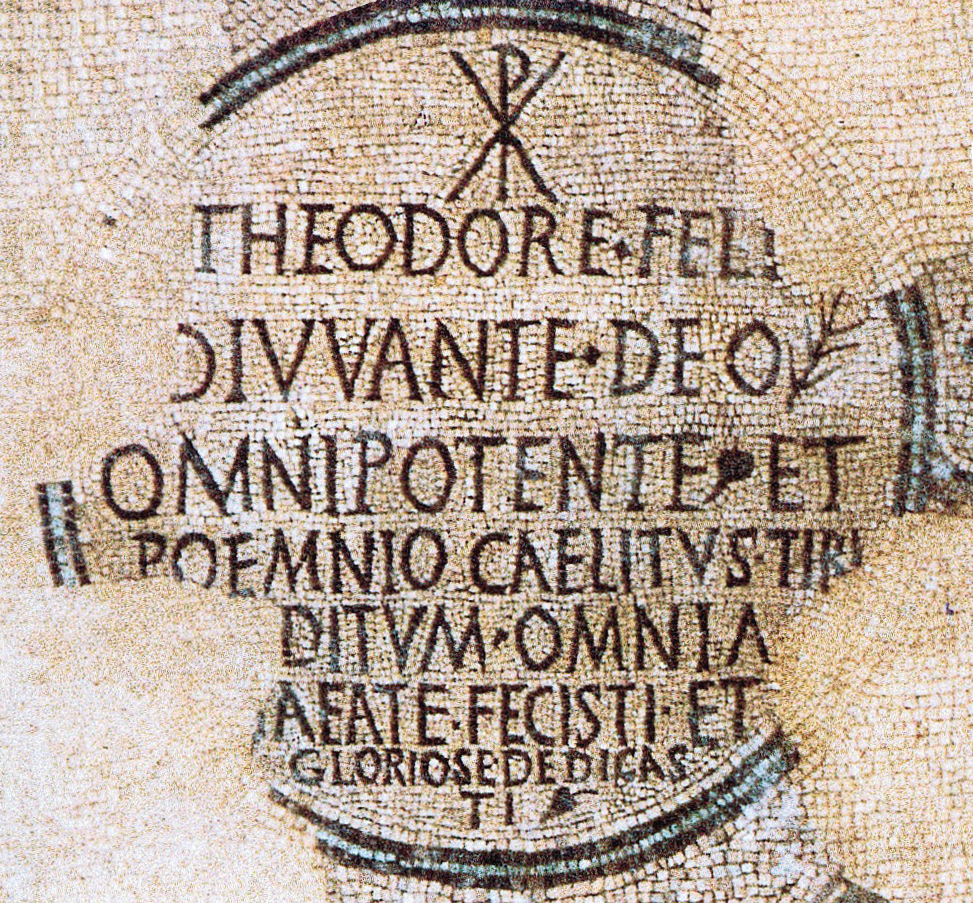 ☧
THEODORE·FELI
DIVVANTE·DEO
OMNIPOTENTE·ET
POEMNIO CAELITVS·TIBI
DITVM·OMNIA
AEATE·FECISTI·ET
GLORIOSE·DEDICAS
TI